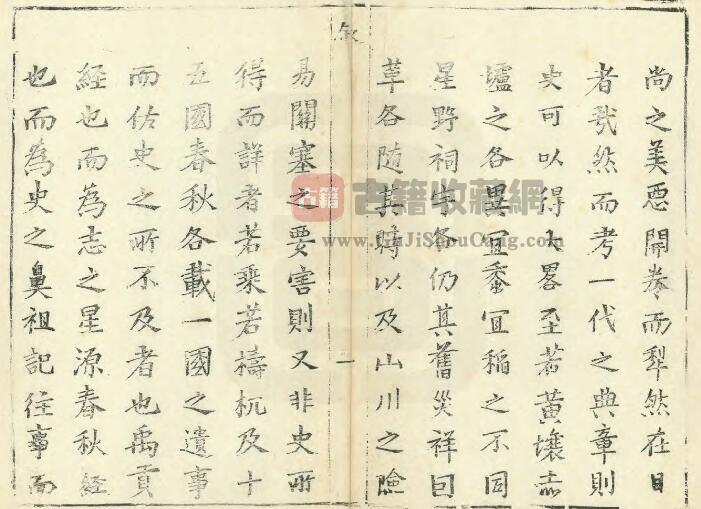 尚之美惡開卷而犁然在目
者哉然而考一代之典章則
史可以得大畧至若黄壤赤
壚之各異宜黍宜稻之不同
星野祠宇各仍其舊災祥日
草各随其時以及山川之險
易關塞之要害則又非史所
得而詳者若乘若檮杌及十
五國春秋各載一國之遺事
而佐史之所不及者也禹貢
經也而為志之星源春秋經
也而為史之鼻祖記往事而
叙
一
古籍
古籍收藏網
www.GuJiShouCang.com